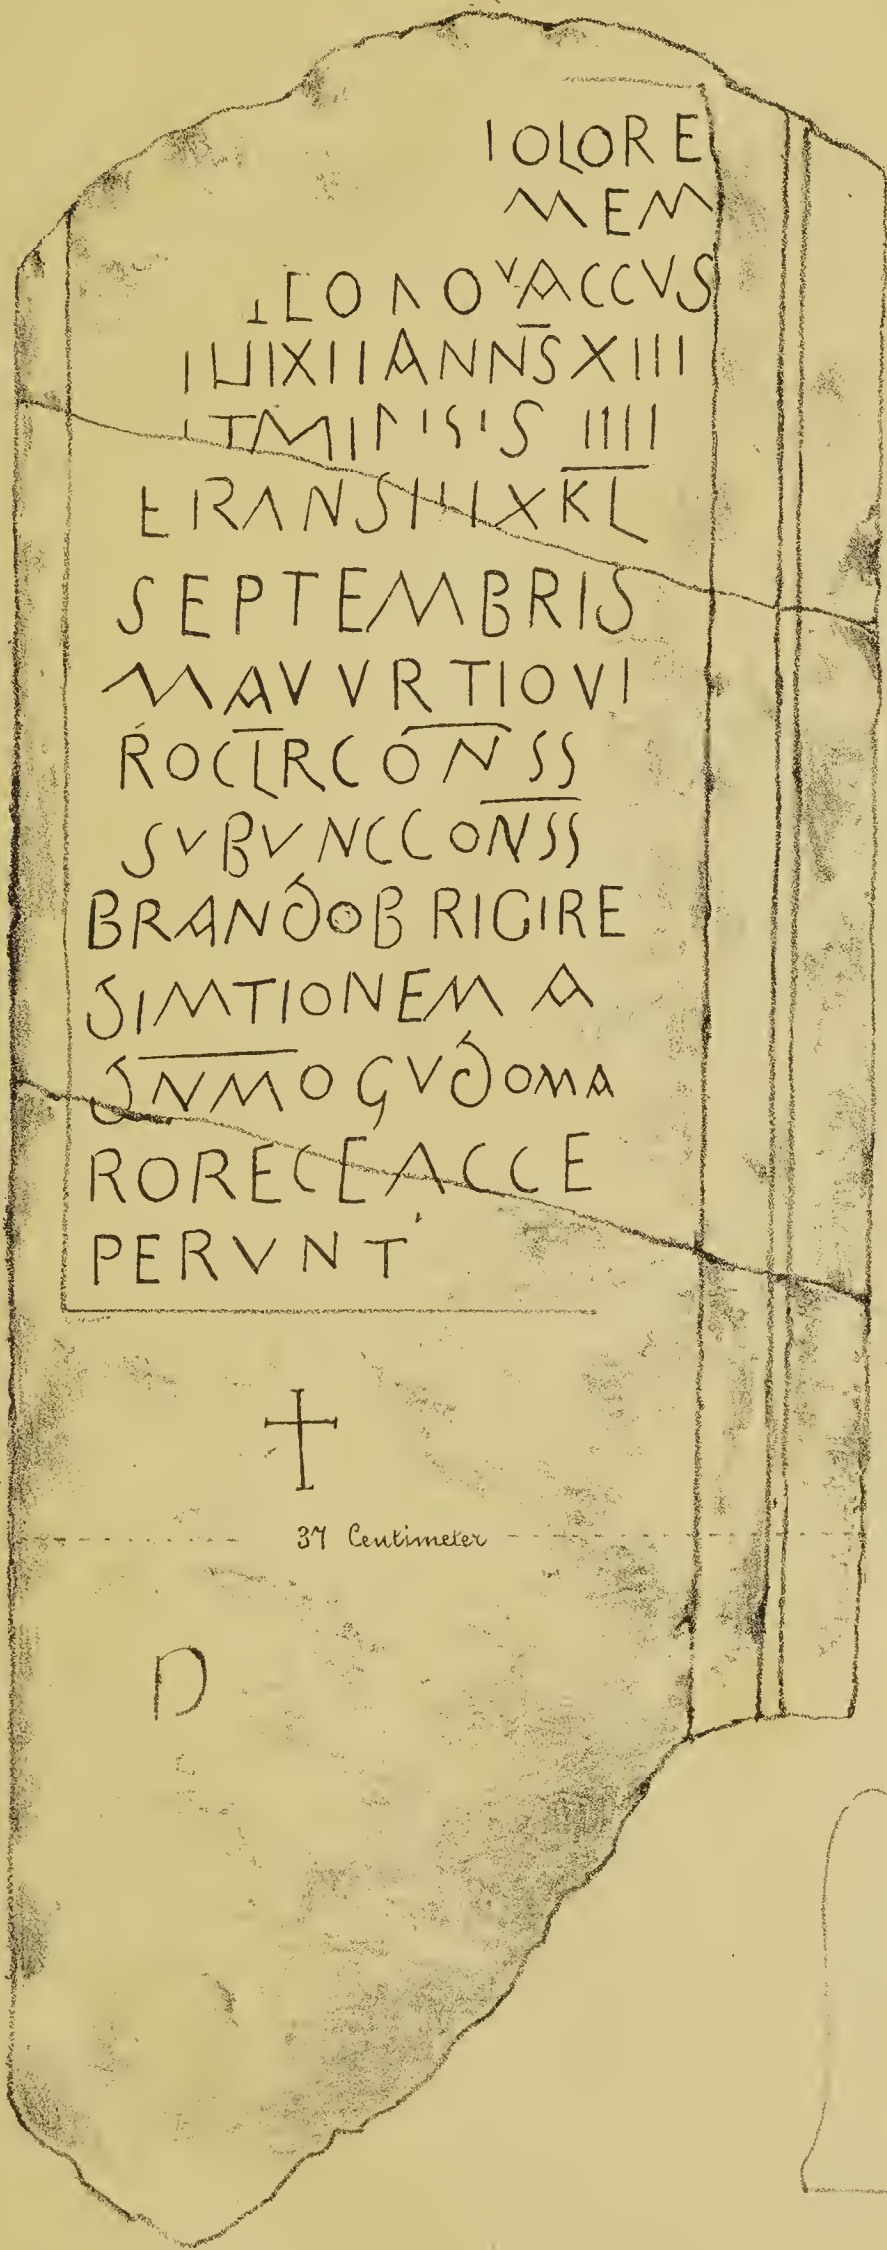 IOLORE
MEM
ACCVS
XIIANNS XIII
IIII
ERANSIIIIXKL
SEPTEMBRIS
MAVVRTIOVI
ROCLRCONSS
SVBVNCCONSS
BRANDOBRIGIRE
DIMTIONEM A
DNMOGVDOMA
RORECEACCE
PERVNT
37 Centimeter
D